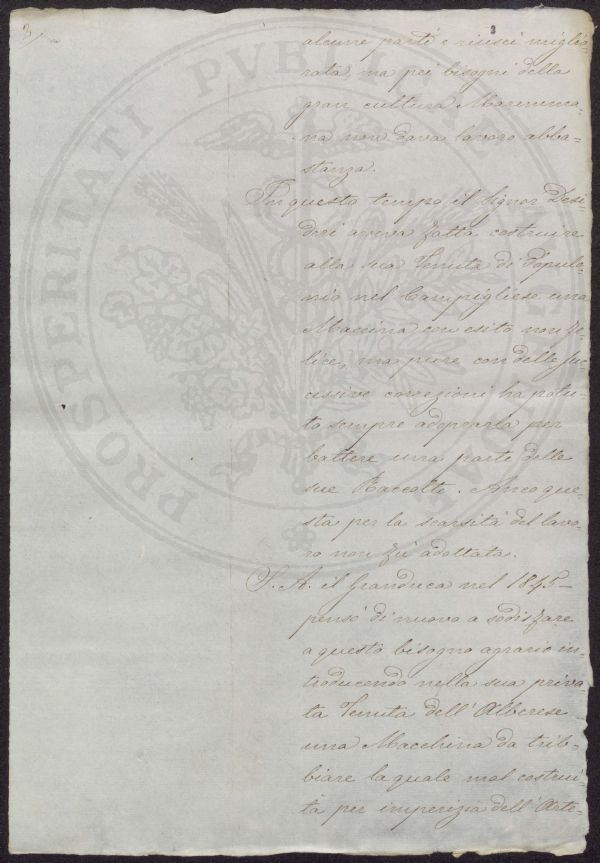 3
3
alcune parti e riuscì miglio-
rata, ma pei bisogni della
gran cultura Maremma-
na non dava lavoro abba-
stanza.
In questo tempo il Signor Desi-
deri aveva fatta costruire
alla sua Tenuta di Populo-
nio nel Campigliese una
Maccina con esito non fe-
lice, ma pure con delle suc-
cessive correzioni ha potu-
to sempre adoprarla per
battere una parte delle
sue Raccolte. Anco que-
sta per la scarsità del lavo-
ro non fu adottata.
S. A. il Granduca nel 1845-
pensò di nuovo a sodisfare
a questo bisogno agrario in-
troducendo nella sua priva-
ta Tenuta dell'Alberese
una Macchina da trib-
biare la quale mal costrui-
ta per imperizia dell'Arte-
PROSPERITATI PVBLICAE AVGENDAE